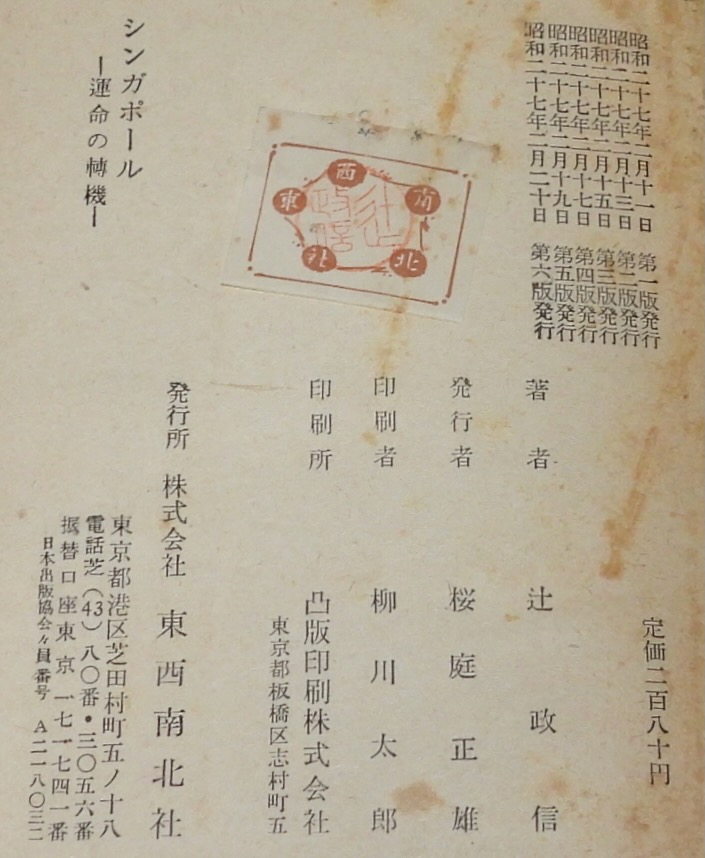 昭和二十七年二月十一日 第一版発行
昭和二十七年二月十三日 第二版発行
昭和二十七年二月十五日 第三版発行
昭和二十七年二月十七日 第四版発行
昭和二十七年二月十九日 第五版発行
昭和二十七年二月二十日 第六版発行
定価二百八十円
著者 辻政信
発行者 桜庭正雄
印刷者 柳川太郎
印刷所 凸版印刷株式会社
東京都板橋区志村町五
発行所 株式会社 東西南北社
東京都港区芝田村町五ノ十八
電話芝(43)八〇番・三〇五六番
振替口座東京一七一七四一番
日本出版協会々員番号 A二一八〇三二
シンガポール
ー運命の轉機ー
東西南北社